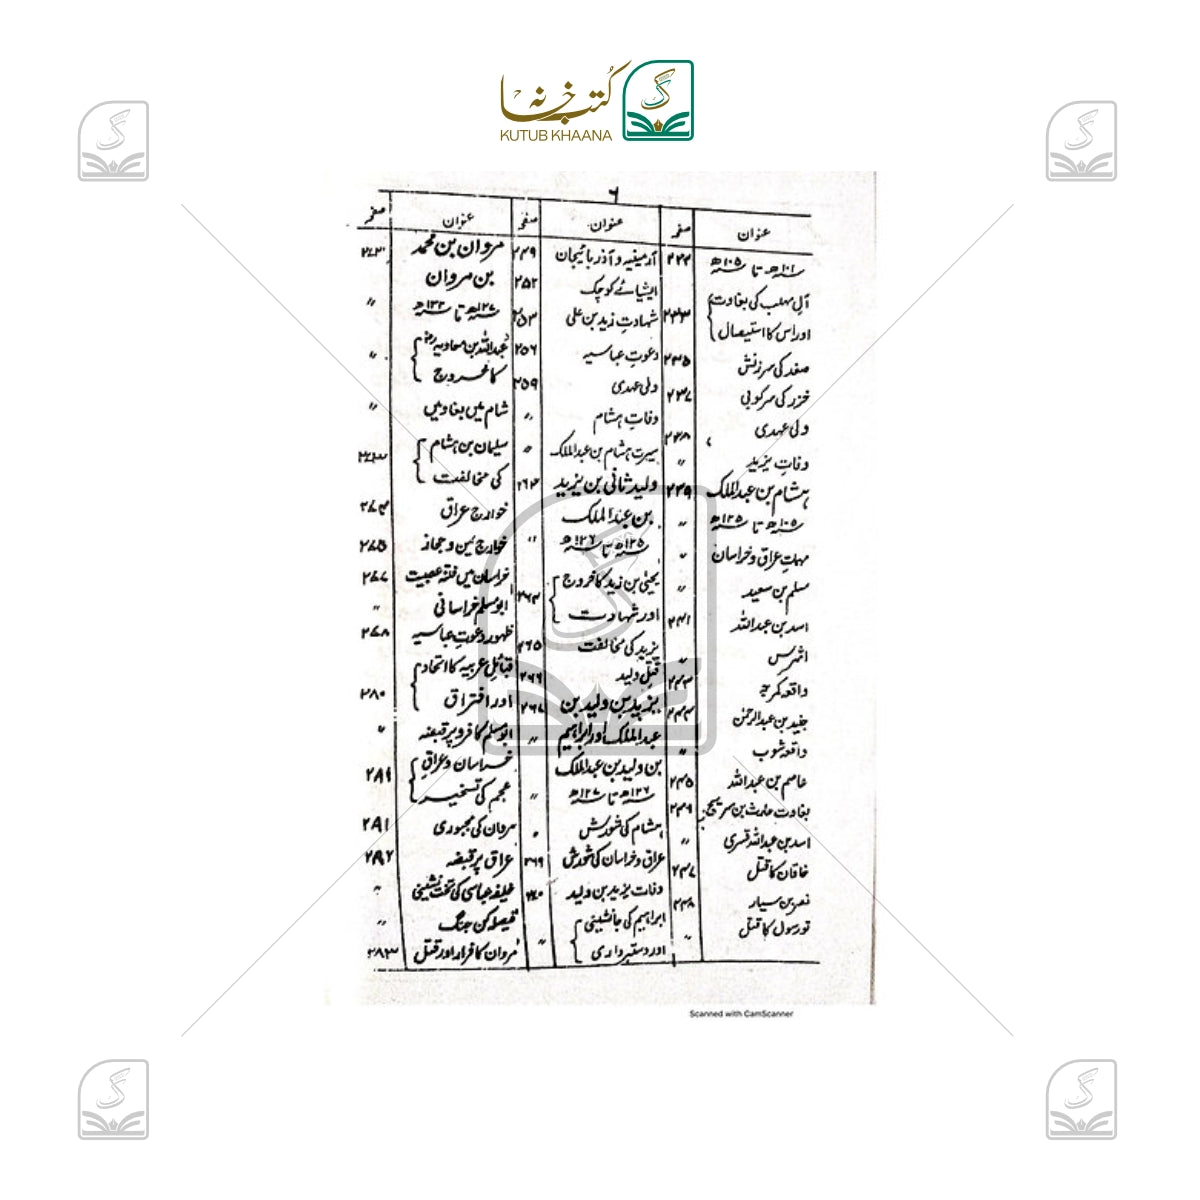 کتب خانہ
KUTUB KHAANA
۶
عنوان صفحہ
۱۰۱ھ تا ۱۰۵ھ ۲۳۲
آلِ مہلب کی بغاوت
اور اس کا استیصال ۲۳۳
صغد کی سرزنش ۲۳۵
خزر کی سرکوبی ۲۳۷
ولی عہدی ۲۳۸
وفاتِ یزید "
ہشام بن عبدالملک ۲۳۹
۱۰۵ھ تا ۱۲۵ھ "
مہماتِ عراق و خراسان "
مسلم بن سعید "
اسد بن عبداللہ ۲۴۱
اشرس "
واقعہ کمرجہ ۲۴۳
جنید بن عبدالرحمٰن ۲۴۴
واقعہ شوب "
عاصم بن عبداللہ ۲۴۵
بغاوت حارث بن سریج ۲۴۶
اسد بن عبداللہ قسری "
خاقان کا قتل ۲۴۷
نصر بن سیار ۲۴۸
کورصول کا قتل "
عنوان صفحہ
آرمینیہ و آذربائیجان ۲۴۹
ایشیائے کوچک ۲۵۲
شہادتِ زید بن علی ۲۵۳
دعوتِ عباسیہ ۲۵۶
ولی عہدی ۲۵۹
وفاتِ ہشام "
سیرت ہشام بن عبدالملک "
ولید ثانی بن یزید ۲۶۳
بن عبدالملک
۱۲۵ھ تا ۱۲۶ھ "
یحییٰ بن زید کا خروج
اور شہادت ۲۶۴
یزید کی مخالفت ۲۶۵
قتلِ ولید ۲۶۶
یزید بن ولید بن ۲۶۷
عبدالملک اور ابراہیم "
بن ولید بن عبدالملک
۱۲۶ھ تا ۱۲۷ھ "
ہشام کی شورش "
عراق و خراسان کی شورش ۲۶۹
وفات یزید بن ولید ۲۷۰
ابراہیم کی جانشینی
اور دستبرداری "
عنوان صفحہ
مروان بن محمد ۲۷۳
بن مروان
۱۲۷ھ تا ۱۳۲ھ "
عبداللہ بن معاویہ
کا خروج "
شام میں بغاوتیں "
سلیمان بن ہشام
کی مخالفت ۲۷۳
خوارج عراق ۲۷۴
خوارج یمن و حجاز ۲۷۵
خراسان میں فتنۂ عصبیت ۲۷۷
ابو مسلم خراسانی "
ظہور دعوتِ عباسیہ ۲۷۸
قبائل عربیہ کا اتحاد
اور افتراق ۲۸۰
ابو مسلم کا مرو پر قبضہ "
خراسان و عراقِ
عجم کی تسخیر ۲۸۱
مروان کی مجبوری ۲۸۱
عراق پر قبضہ ۲۸۲
خلیفہ عباسی کی تخت نشینی "
فیصلہ کن جنگ "
مروان کا فرار اور قتل ۲۸۳
Scanned with CamScanner